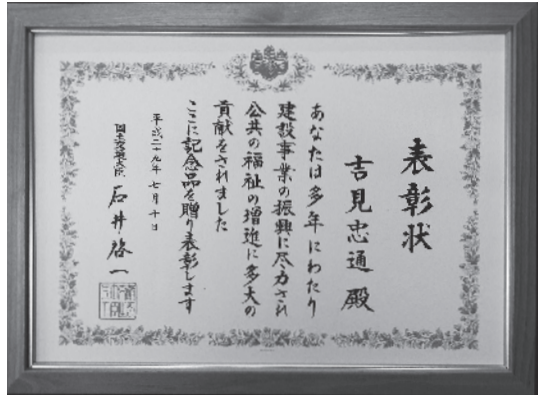 表彰状
吉見忠通 殿
あなたは多年にわたり
建設事業の振興に尽力され
公共の福祉の増進に多大の
貢献をされました
ここに記念品を贈り表彰します
平成二十九年七月十日
国土交通大臣 石井啓一